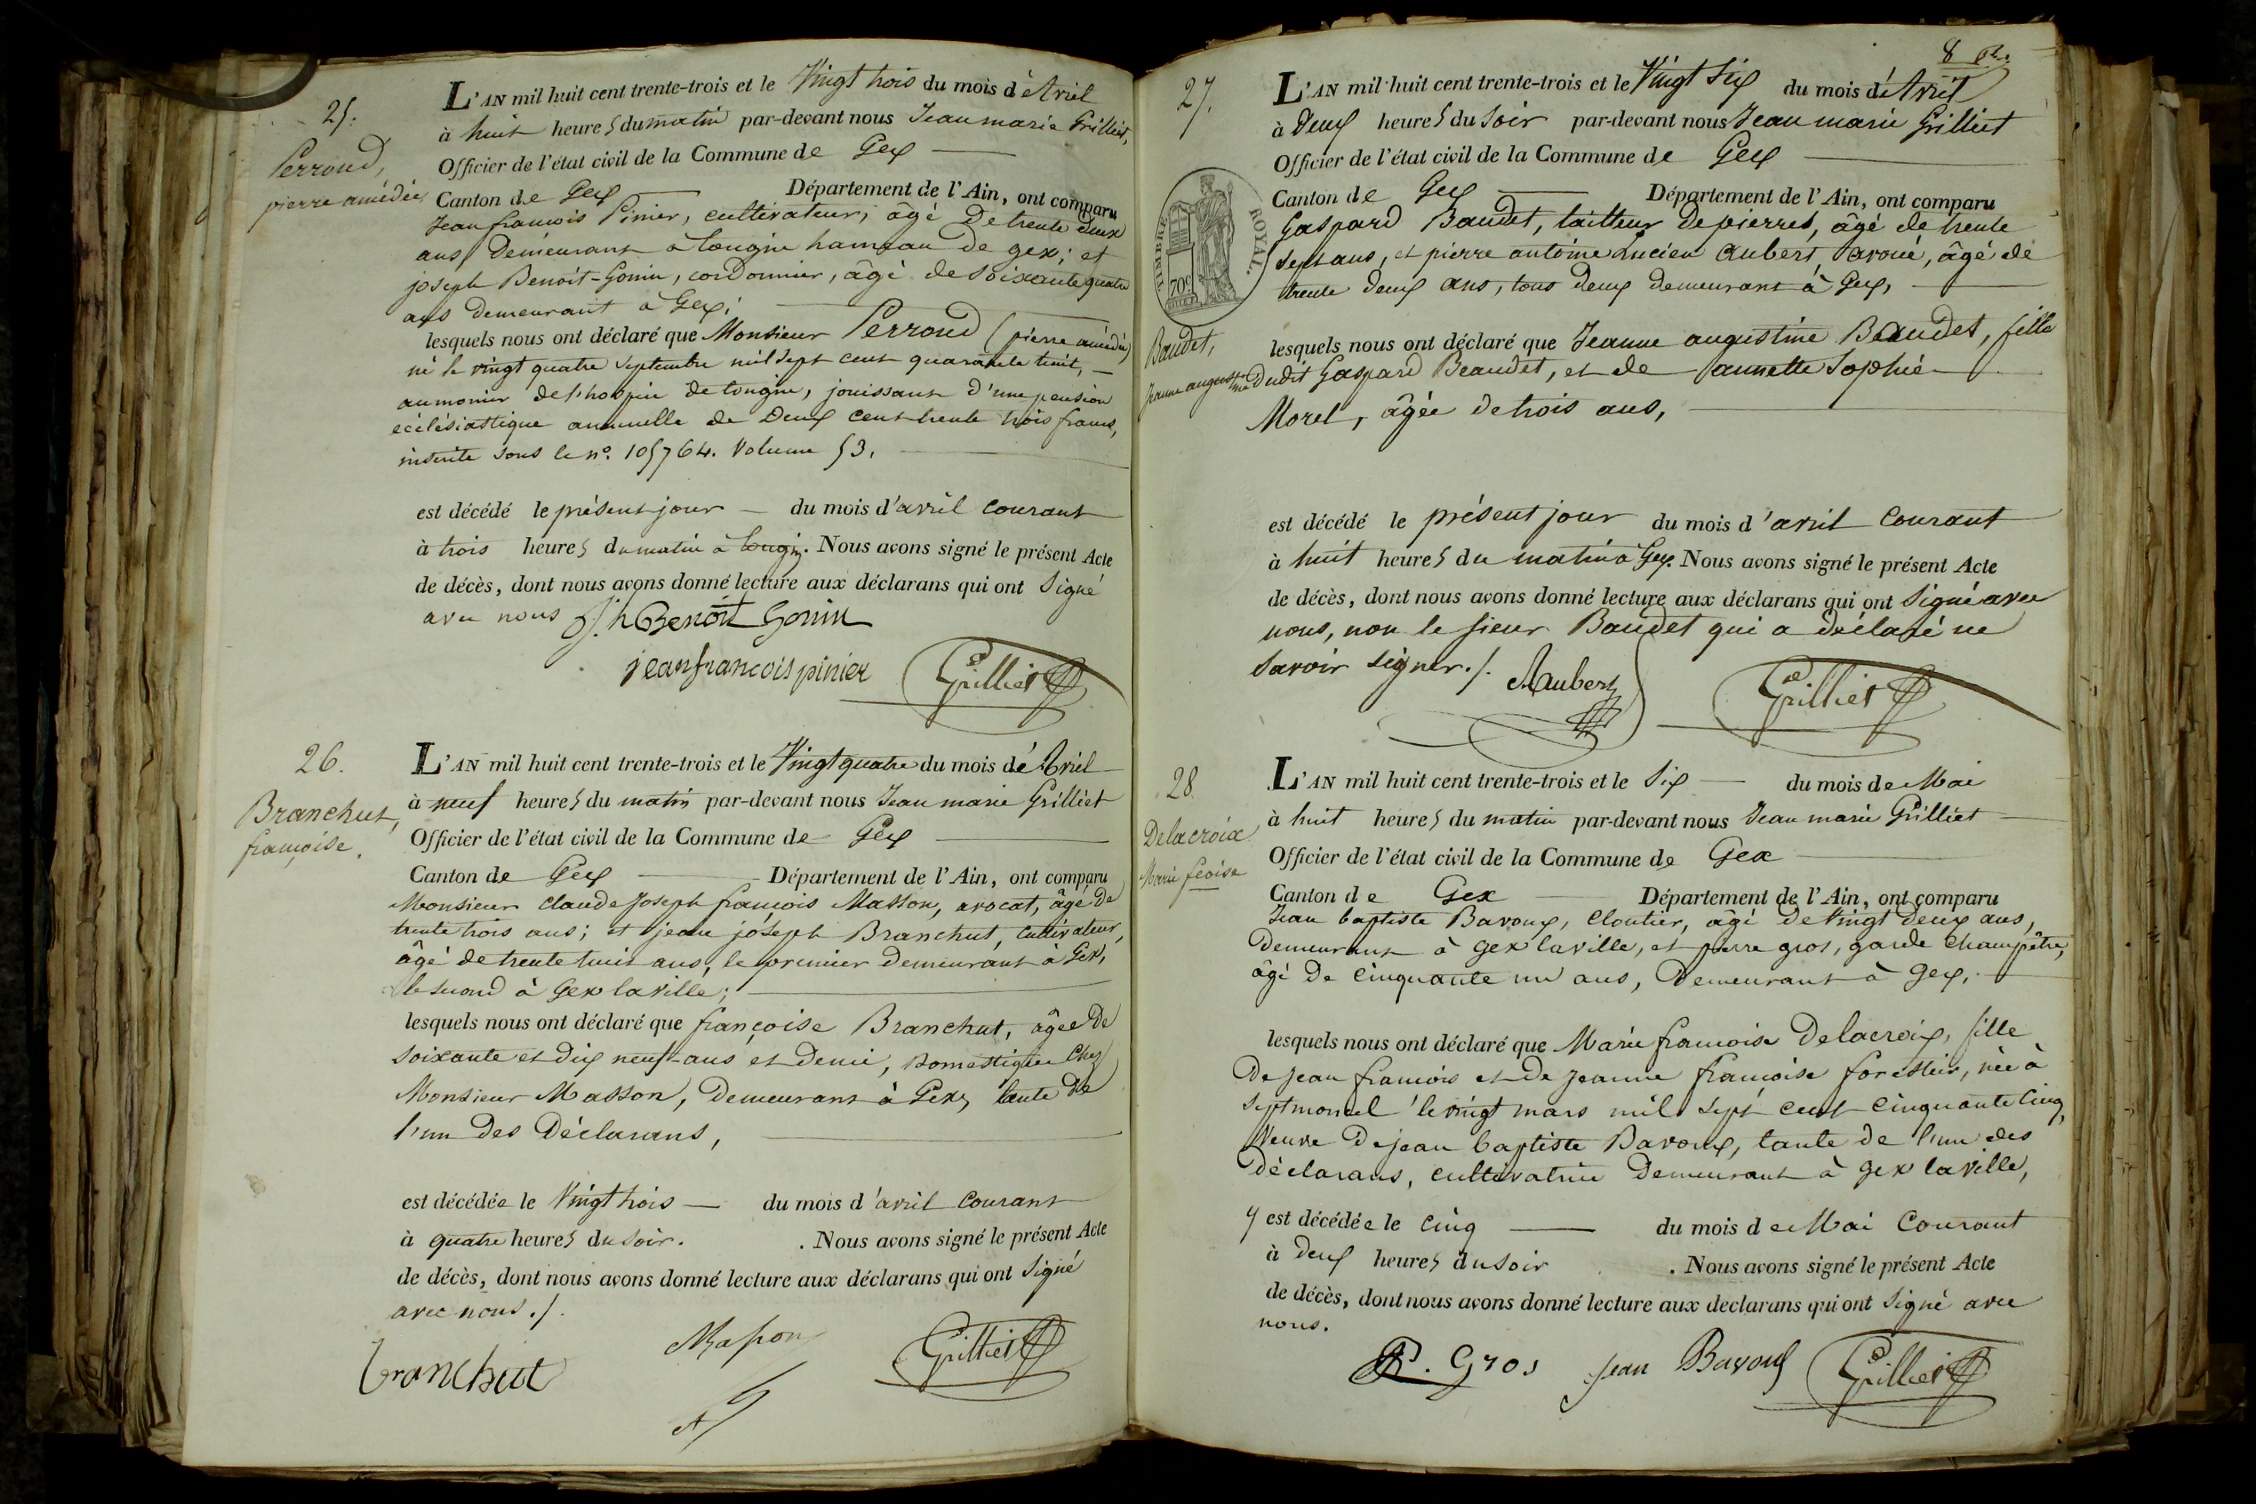 25.
Perroud,
pierre amédée
L'AN mil huit cent trente-trois et le Vingt trois du mois d'Avril
à huit heures du matin par-devant nous Jean marie Grilliet,
Officier de l'état civil de la Commune de Gex
Canton de Gex Département de l'Ain, ont comparu
Jean francois Pinier, cultivateur, âgé De trente deux
ans Demeurant à tougin hameau de gex; et
joseph Benoit-Gonin, cordonnier, âgé de soixante quatre
ans demeurant à Gex;
lesquels nous ont déclaré que Monsieur Perroud (pierre amédée)
né le vingt quatre septembre mil sept cent quarante huit,
aumonier de l'hospice de tougin, jouissant d'une pension
écclésiastique annuelle de Deux cent trente trois francs,
inscrite sous le n° 105764. Volume 53.
est décédé le présent jour du mois d'avril courant
à trois heures du matin à tougin. Nous avons signé le présent Acte
de décès, dont nous avons donné lecture aux déclarans qui ont signé
avec nous J.h Benoit Gonin
jean francois pinier Grilliet
26.
Branchut,
françoise.
L'AN mil huit cent trente-trois et le Vingt quatre du mois d'Avril
à neuf heures du matin par-devant nous Jean marie Grilliet
Officier de l'état civil de la Commune de Gex
Canton de Gex Département de l'Ain, ont comparu
Monsieur Claude Joseph françois Masson, avocat, âgé de
trente trois ans; et jean joseph Branchut, Cultivateur,
âgé de trente huit ans, le premier demeurant à Gex,
le second à Gex la ville;
lesquels nous ont déclaré que françoise Branchut, âgée De
soixante et dix neuf ans et demie, Domestique Chez
Monsieur Masson, Demeurant à Gex, tante de
l'un des Déclarans,
est décédée le Vingt trois du mois d'avril courant
à quatre heures du soir. . Nous avons signé le présent Acte
de décès, dont nous avons donné lecture aux déclarans qui ont signé
avec nous ./.
branchut Masson Grilliet
8
27.
TIMBRE ROYAL.
70c
Baudet,
Jeanne augustine
L'AN mil huit cent trente-trois et le Vingt Six du mois d'Avril
à Deux heures du Soir par-devant nous Jean marie Grilliet
Officier de l'état civil de la Commune de Gex
Canton de Gex Département de l'Ain, ont comparu
Gaspard Baudet, tailleur de pierres, âgé de trente
sept ans, et pierre antoine Lucien Aubert avoué, âgé de
trente deux ans, tous deux demeurant à Gex,
lesquels nous ont déclaré que Jeanne augustine Beaudet, fille
dudit Gaspard Beaudet, et de jannette Sophie
Morel, âgée de trois ans,
est décédé le présent jour du mois d'avril Courant
à huit heures du matin à Gex. Nous avons signé le présent Acte
de décès, dont nous avons donné lecture aux déclarans qui ont signé avec
nous, non le sieur Baudet qui a déclaré ne
savoir signer ./. Aubert Grilliet
28.
Delacroix
Marie fcoise
L'AN mil huit cent trente-trois et le Six du mois de Mai
à huit heures du matin par-devant nous Jean marie Grilliet
Officier de l'état civil de la Commune de Gex
Canton de Gex Département de l'Ain, ont comparu
Jean baptiste Bavoux, Cloutier, âgé de Vingt deux ans,
Demeurant à gex la ville, et pierre gros, garde Champêtre,
âgé De cinquante un ans, Demeurant à gex,
lesquels nous ont déclaré que Marie francoise Delacroix, fille
De jean francois et De jeanne françoise forestier, née à
septmoncel le vingt mars mil sept cent cinquante cinq,
Veuve De jean baptiste Bavoux, tante de l'un des
Déclarans, cultivatrice Demeurant à gex la ville,
y est décédée le cinq du mois de Mai Courant
à Deux heures du soir . Nous avons signé le présent Acte
de décès, dont nous avons donné lecture aux declarans qui ont signé avec
nous.
P. Gros jean Bavoux Grilliet